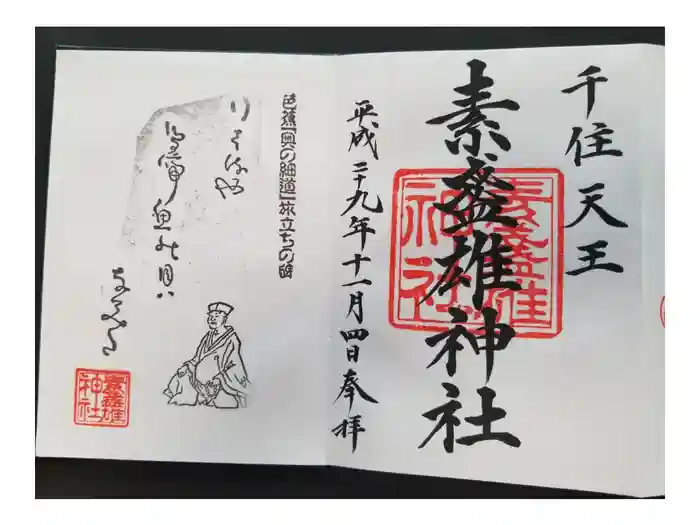 千住天王
素盞雄神社
素盞雄
神社
平成二十九年十一月四日奉拝
芭蕉「奥の細道」旅立ちの碑
行くはるや
鳥啼魚の目ハ
なみだ
素盞雄
神社